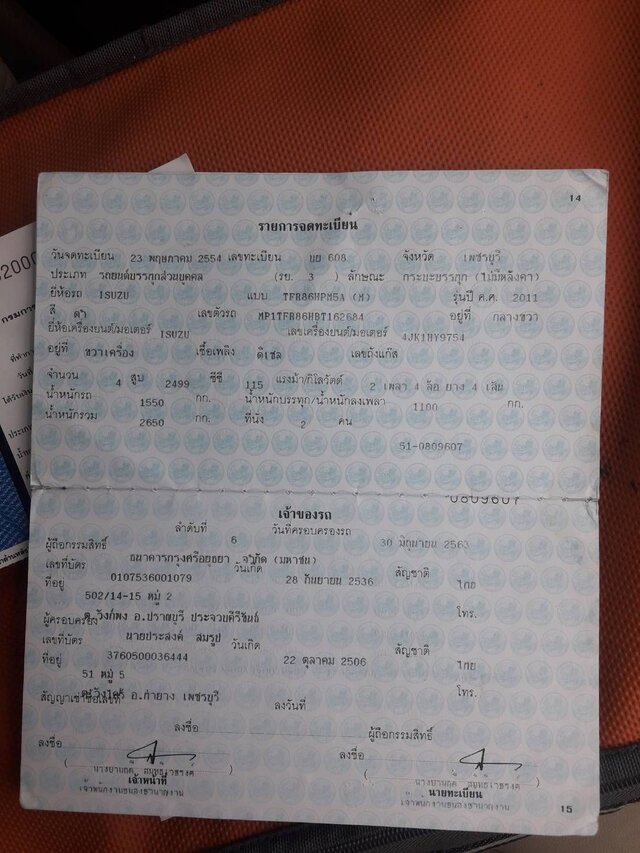 14
รายการจดทะเบียน
วันจดทะเบียน 23 พฤษภาคม 2554 เลขทะเบียน บย 608 จังหวัด เพชรบุรี
ประเภท รถยนต์บรรทุกส่วนบุคคล (รย. 3 ) ลักษณะ กระบะบรรทุก (ไม่มีหลังคา)
ยี่ห้อรถ ISUZU แบบ TFR86HPM5A (M) รุ่นปี ค.ศ. 2011
สี ดำ เลขตัวรถ MP1TFR86HBT162684 อยู่ที่ กลางขวา
ยี่ห้อเครื่องยนต์/มอเตอร์ ISUZU เลขเครื่องยนต์/มอเตอร์ 4JK1HY9754
อยู่ที่ ขวาเครื่อง เชื้อเพลิง ดีเซล เลขถังแก๊ส
จำนวน 4 สูบ 2499 ซีซี 115 แรงม้า/กิโลวัตต์ 2 เพลา 4 ล้อ ยาง 4 เส้น
น้ำหนักรถ 1550 กก. น้ำหนักบรรทุก/น้ำหนักลงเพลา 1100 กก.
น้ำหนักรวม 2650 กก. ที่นั่ง 2 คน
51-0809607
0809607
เจ้าของรถ
ลำดับที่ 6 วันที่ครอบครองรถ 30 มิถุนายน 2563
ผู้ถือกรรมสิทธิ์ ธนาคารกรุงศรีอยุธยา จำกัด (มหาชน)
เลขที่บัตร 0107536001079 วันเกิด 28 กันยายน 2536 สัญชาติ ไทย
ที่อยู่ 502/14-15 หมู่ 2 โทร.
ต.วังก์พง อ.ปราณบุรี ประจวบคีรีขันธ์
ผู้ครอบครอง นายประสงค์ สมรูป
เลขที่บัตร 3760500036444 วันเกิด 22 ตุลาคม 2506 สัญชาติ ไทย
ที่อยู่ 51 หมู่ 5 โทร.
ต.วังไคร้ อ.ท่ายาง เพชรบุรี
สัญญาเช่าซื้อเลขที่ ลงวันที่
ลงชื่อ ผู้ถือกรรมสิทธิ์
ลงชื่อ ลงชื่อ
เจ้าหน้าที่ นายทะเบียน
เจ้าพนักงานขนส่งชำนาญงาน เจ้าพนักงานขนส่งชำนาญงาน
15
2000
กรมการ